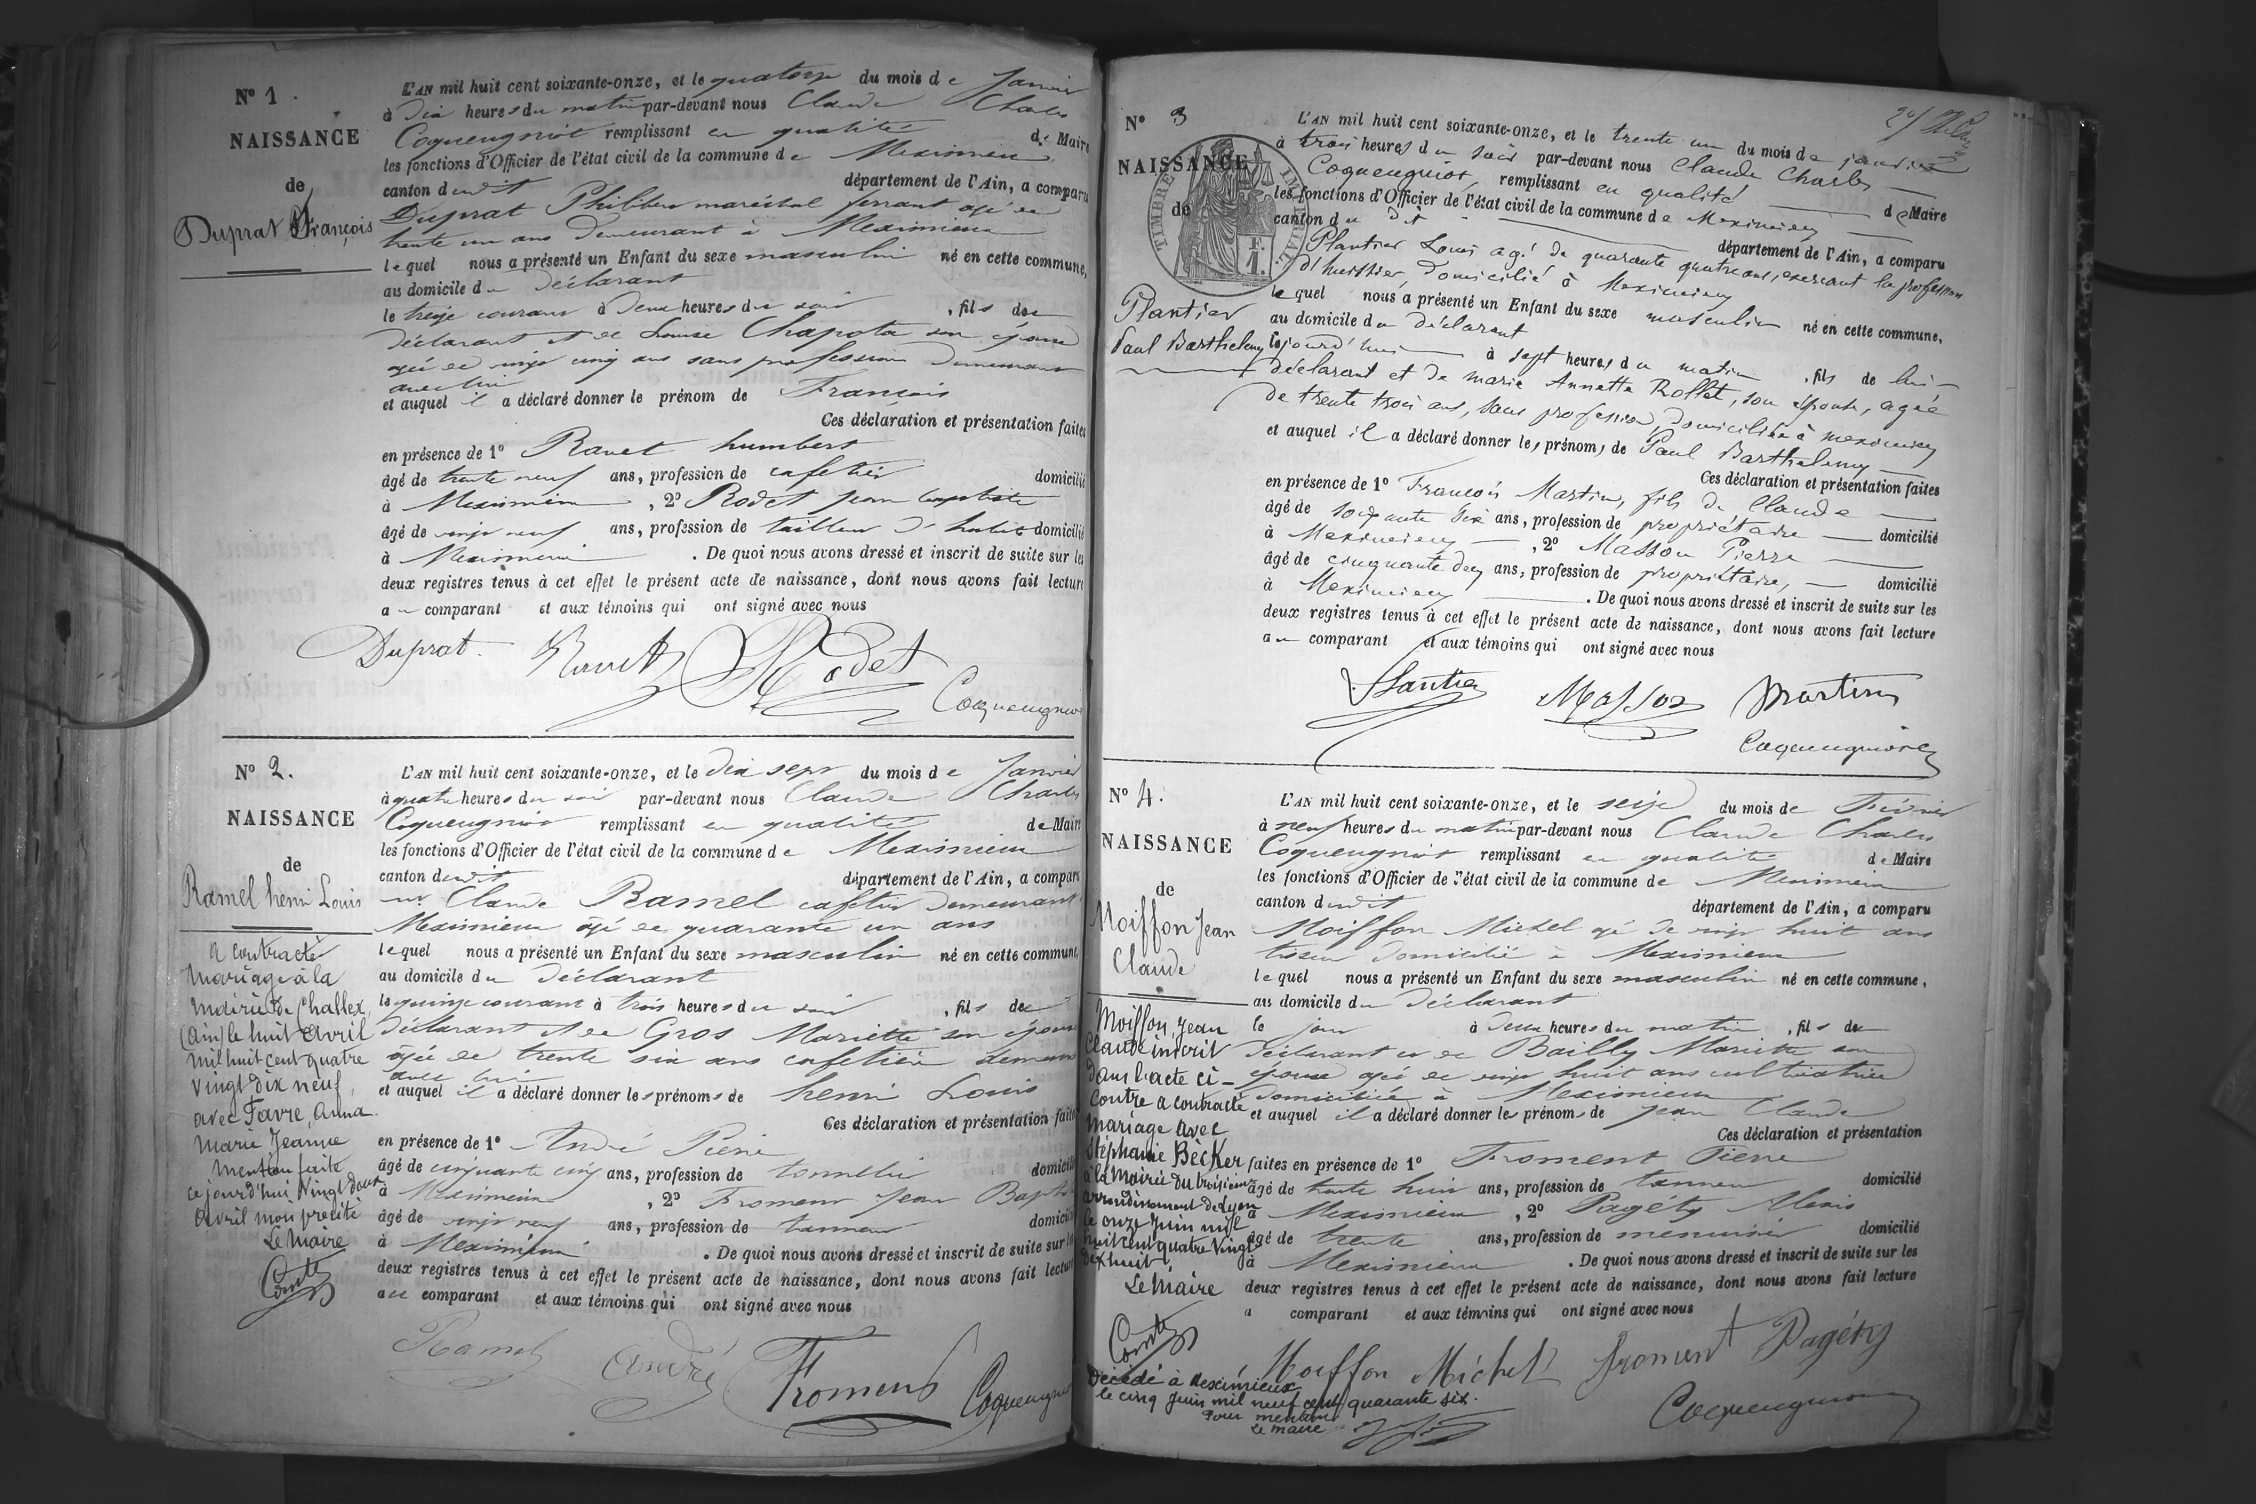 N° 1.
NAISSANCE
de
Duprat François
L'AN mil huit cent soixante-onze, et le quatorze du mois de Janvier
à Dix heures du matin par-devant nous Claude Charles
Coqueugniot remplissant en qualité de Maire
les fonctions d'Officier de l'état civil de la commune de Meximieux
canton dudit département de l'Ain, a comparu
Duprat Philibert maréchal ferrant agé de
trente un ans demeurant à Meximieux
lequel nous a présenté un Enfant du sexe masculin né en cette commune,
au domicile du déclarant
le treize courant à deux heures du soir, fils du
déclarant et de Louise Chapota son épouse
agée de vingt cinq ans sans profession demeurant
avec lui
et auquel il a déclaré donner le prénom de François
Ces déclaration et présentation faites
en présence de 1° Ravet humbert
âgé de trente neuf ans, profession de cafetier domicilié
à Meximieux, 2° Rodet jean baptiste
âgé de vingt neuf ans, profession de tailleur d'habits domicilié
à Meximieux. De quoi nous avons dressé et inscrit de suite sur les
deux registres tenus à cet effet le présent acte de naissance, dont nous avons fait lecture
au comparant et aux témoins qui ont signé avec nous
Duprat Ravet Rodet
Coqueugniot
N° 2.
NAISSANCE
de
Ramel henri Louis
a contracté
mariage à la
mairie de Challex,
(Ain) le huit avril
mil huit cent quatre
vingt dix neuf,
avec Favre, Anna
Marie Jeanne
mention faite
ce jourd'hui vingt doux
avril mon précité
Le Maire
L'AN mil huit cent soixante-onze, et le dix sept du mois de Janvier
à quatre heures du soir par-devant nous Claude Charles
Coqueugniot remplissant en qualité de Maire
les fonctions d'Officier de l'état civil de la commune de Meximieux
canton dudit département de l'Ain, a comparu
mr Claude Ramel cafetier demeurant
Meximieux âgé de quarante un ans
lequel nous a présenté un Enfant du sexe masculin né en cette commune,
au domicile du déclarant
le quinze courant à trois heures du soir, fils du
déclarant et de Gros Mariette son épouse
âgée de trente six ans cafetière demeurant
avec lui
et auquel il a déclaré donner les prénoms de henri Louis
Ces déclaration et présentation faites
en présence de 1° André Pierre
âgé de cinquante cinq ans, profession de tonnelier domicilié
à Meximieux, 2° Froment Jean Baptiste
âgé de vingt neuf ans, profession de tanneur domicilié
à Meximieux. De quoi nous avons dressé et inscrit de suite sur les
deux registres tenus à cet effet le présent acte de naissance, dont nous avons fait lecture
au comparant et aux témoins qui ont signé avec nous
Ramel André Froment Coqueugniot
N° 3
NAISSANCE
de
TIMBRE IMPERIAL
F.
1.
Plantier
Paul Barthelemy
L'AN mil huit cent soixante-onze, et le trente un du mois de janvier
à trois heures du soir par-devant nous Claude Charles
Coqueugniot, remplissant en qualité de Maire
les fonctions d'Officier de l'état civil de la commune de Meximieux
canton du dit département de l'Ain, a comparu
Plantier Louis agé de quarante quatre ans, exerçant la profession
d'huissier, domicilié à Meximieux
lequel nous a présenté un Enfant du sexe masculin né en cette commune,
au domicile du déclarant
le jourd'hui à sept heures du matin, fils de lui
déclarant et de marie Annette Rollet, son épouse, agée
de trente trois ans, sans profession, domiciliée à meximieux
et auquel il a déclaré donner les prénoms de Paul Barthelemy
Ces déclaration et présentation faites
en présence de 1° François Martin, fils de Claude
âgé de soixante dix ans, profession de propriétaire domicilié
à Meximieux, 2° Masson Pierre
âgé de cinquante deux ans, profession de propriétaire, domicilié
à Meximieux. De quoi nous avons dressé et inscrit de suite sur les
deux registres tenus à cet effet le présent acte de naissance, dont nous avons fait lecture
au comparant et aux témoins qui ont signé avec nous
Plantier Masson Martin
Coqueugniot
N° 4.
NAISSANCE
de
Moiffon Jean
Claude
Moiffon, Jean
Claude inscrit
dans l'acte ci-
contre a contracté
mariage avec
Stéphanie Bècker
à la Mairie du troisième
arrondissement de Lyon
le onze juin mil
huit cent quatre vingt
dix huit,
Le Maire
Décédé à Meximieux
le cinq Juin mil neuf cent quarante six.
Pour mention
Le maire
L'AN mil huit cent soixante-onze, et le seize du mois de Février
à neuf heures du matin par-devant nous Claude Charles
Coqueugniot remplissant en qualité de Maire
les fonctions d'Officier de l'état civil de la commune de Meximieux
canton dudit département de l'Ain, a comparu
Moiffon Michel agé de vingt huit ans
tisseur domicilié à Meximieux
lequel nous a présenté un Enfant du sexe masculin né en cette commune,
au domicile du déclarant
le jour à deux heures du matin, fils du
déclarant et de Bailly Mariette son
épouse agée de vingt huit ans cultivatrice
domiciliée à Meximieux
et auquel il a déclaré donner les prénoms de jean Claude
Ces déclaration et présentation
faites en présence de 1° Froment Pierre
âgé de trente huit ans, profession de tanneur domicilié
à Meximieux, 2° Pagéty Alexis
âgé de trente ans, profession de menuisier domicilié
à Meximieux. De quoi nous avons dressé et inscrit de suite sur les
deux registres tenus à cet effet le présent acte de naissance, dont nous avons fait lecture
a comparant et aux témoins qui ont signé avec nous
Moiffon Michel froment Pagéty
Coqueugniot